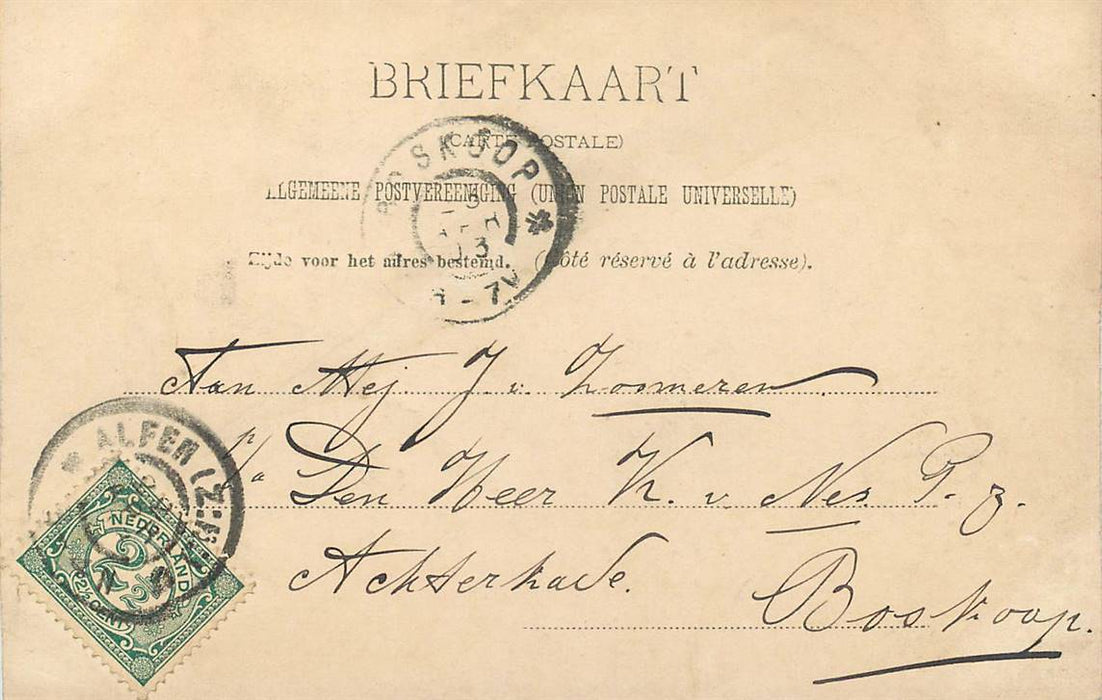 BRIEFKAART
(CARTE POSTALE)
ALGEMEENE POSTVEREENIGING (UNION POSTALE UNIVERSELLE)
Zijde voor het adres bestemd. (Côté réservé à l'adresse).
BOSKOOP
Aan Mej. J. v. Zoomeren
p/a Den Heer K. v. Nes P. z.
Achterkade.
Boskoop.
ALFEN (Z:H)
NEDERLAND
2½
2½ CENT